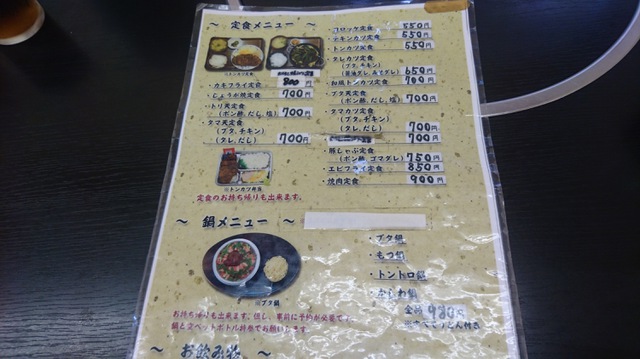 ～ 定食メニュー ～
コロッケ定食 550円
チキンカツ定食 550円
トンカツ定食 550円
タレカツ定食
(ブタ、チキン)
(醤油ダレ、みそダレ) 650円
700円
・ブタ天定食
(ポン酢、だし、塩) 700円
・タマカツ定食
(ブタ、チキン)
(タレ、だし) 700円
700
豚しゃぶ定食
(ポン酢、ゴマダレ) 750円
・エビフライ定食 850円
・焼肉定食 900円
※トンカツ定食
・カキフライ定食 800円
・しょうが焼定食 700円
・トリ天定食
(ポン酢、だし、塩) 700円
・タマ天定食
(ブタ、チキン)
(タレ、だし) 700円
※トンカツ弁当
定食のお持ち帰りも出来ます。
～ 鍋メニュー ～
・ブタ鍋
・もつ鍋
・トントロ鍋
・かしわ鍋
全品 980円
※すべてうどん付き
※ブタ鍋
お持ち帰りも出来ます。但し、事前に予約が必要です。
鍋と空ペットボトル持参でお願いします。
～ お飲み物 ～